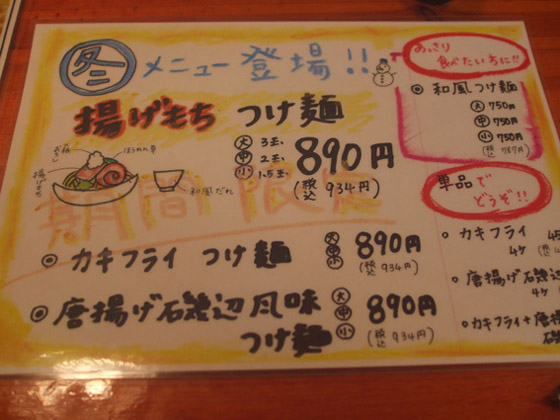 冬 メニュー 登場!!
揚げもち つけ麺
大 3玉
中 2玉
小 1.5玉
890円
(税込 934円)
ほうれん草
揚げもち
和風だれ
期間限定
◎ カキフライ つけ麺
大 中 小
890円
(税込 934円)
◎ 唐揚げ石磯辺風味
つけ麺
大 中 小
890円
(税込 934円)
あっさり
食べたい方に!!
◎ 和風つけ麺
大 750円
中 750円
小 750円
(税込 787円)
単品で
どうぞ!!
カキフライ
4ケ
唐揚
4ケ
カキフライ+唐揚